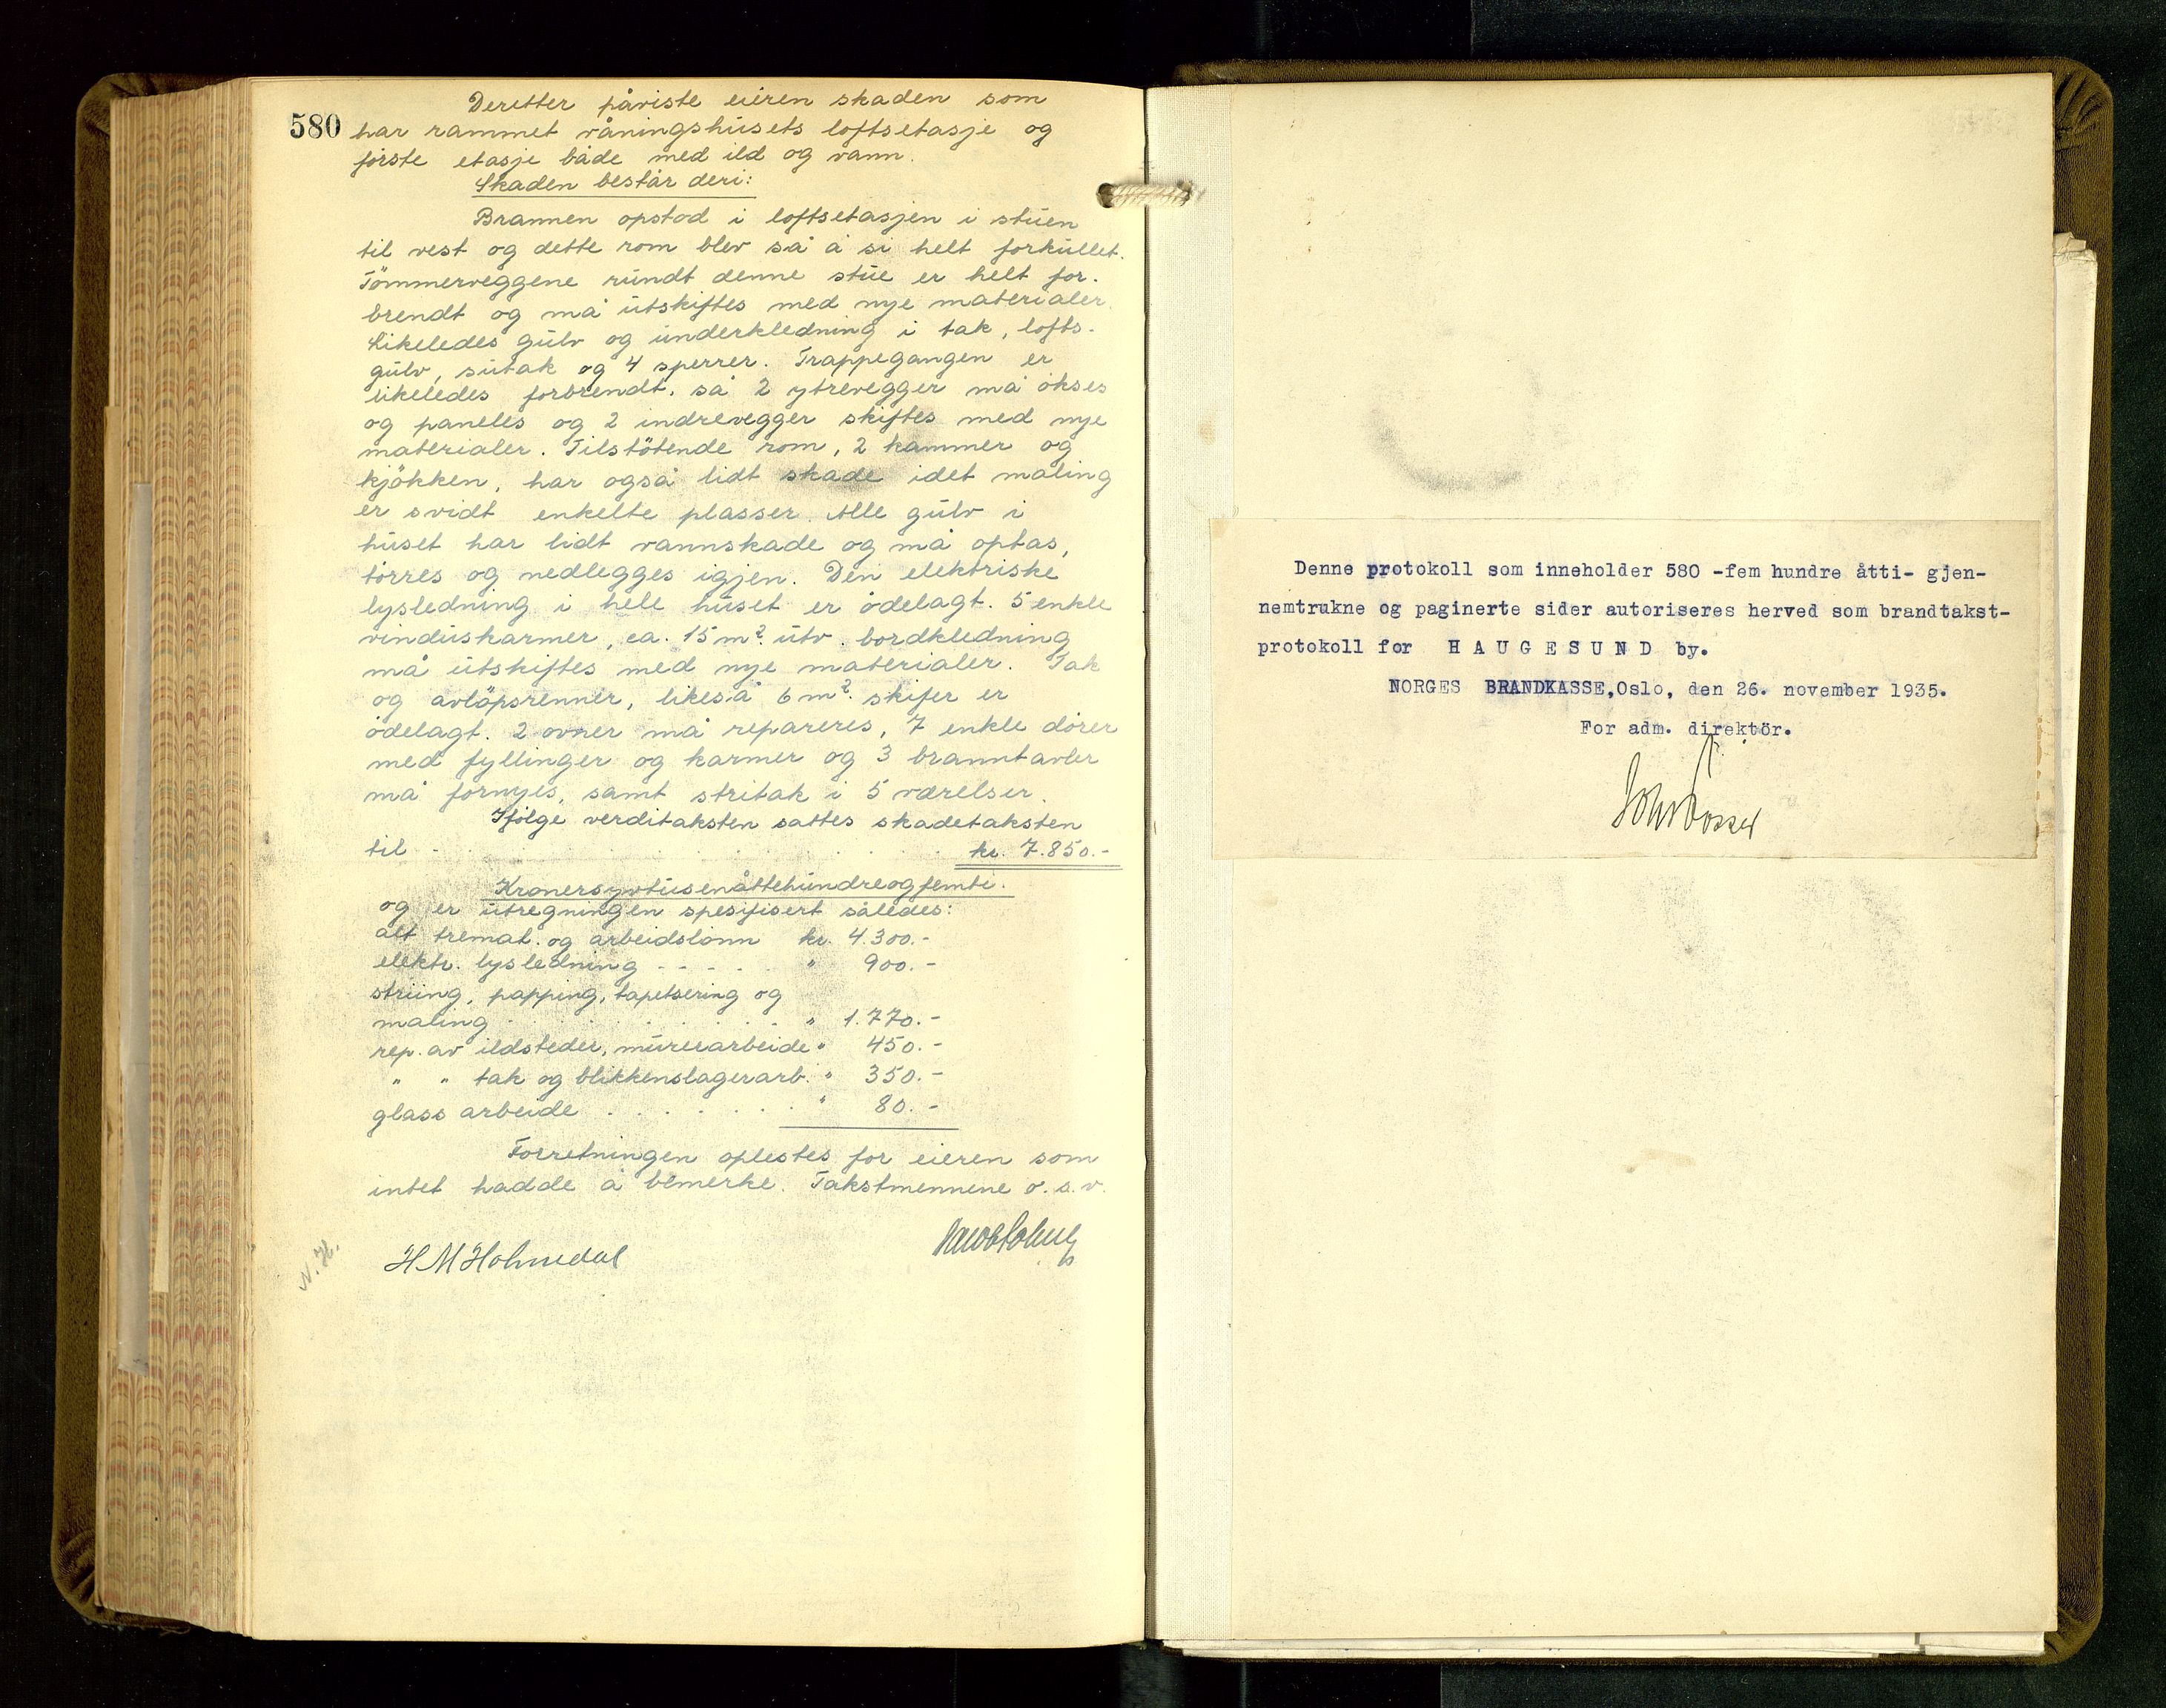 580
Deretter påviste eieren skaden som
har rammet våningshusets loftsetasje og
første etasje både med ild og vann.
Skaden består deri:
Brannen opstod i loftsetasjen i stuen
til vest og dette rom blev så å si helt forkullet.
Tømmerveggene rundt denne stue er helt for-
brendt og må utskiftes med nye materialer.
Likeledes gulv og underkledning i tak, lofts-
gulv, sutak og 4 sperrer. Trappegangen er
likeledes forbrendt, så 2 ytrevegger må økses
og paneles og 2 indrevegger skiftes med nye
materialer. Tilstötende rom, 2 kammer og
kjökken, har også lidt skade idet maling
er svidt enkelte plasser. Alle gulv i
huset har lidt vannskade og må optas,
törres og nedlegges igjen. Den elektriske
lysledning i hele huset er ödelagt. 5 enkle
vinduskarmer, ca. 15 m² utv. bordkledning
må utskiftes med nye materialer. Tak
og avlöpsrenner, likeså 6 m² skifer er
ödelagt. 2 ovner må repareres, 7 enkle dörer
med fyllinger og karmer og 3 branntavler
må fornyes, samt stritak i 5 værelser.
Ifölge verditaksten sattes skadetaksten
til . . . . . . . . . . kr. 7.850.-
Kronersyvtusenåttehundreogfemti.
og er utregningen spesifisert således:
alt tremat. og arbeidslönn kr. 4.300.-
elektr. lysledning - - - . . " 900.-
striing, papping, tapetsering og
maling . . . . . . . . " 1.770.-
rep. av ildsteder, murerarbeide " 450.-
" " tak og blikkenslagerarb. " 350.-
glass arbeide . . . . . . . " 80.-
Forretningen oplestes for eieren som
intet hadde å bemerke. Takstmennene o.s.v.
H M Holmedal
N. H.
Denne protokoll som inneholder 580 -fem hundre åtti- gjen-
nemtrukne og paginerte sider autoriseres herved som brandtakst-
protokoll for H A U G E S U N D by.
NORGES BRANDKASSE,Oslo, den 26. november 1935.
For adm. direktör.